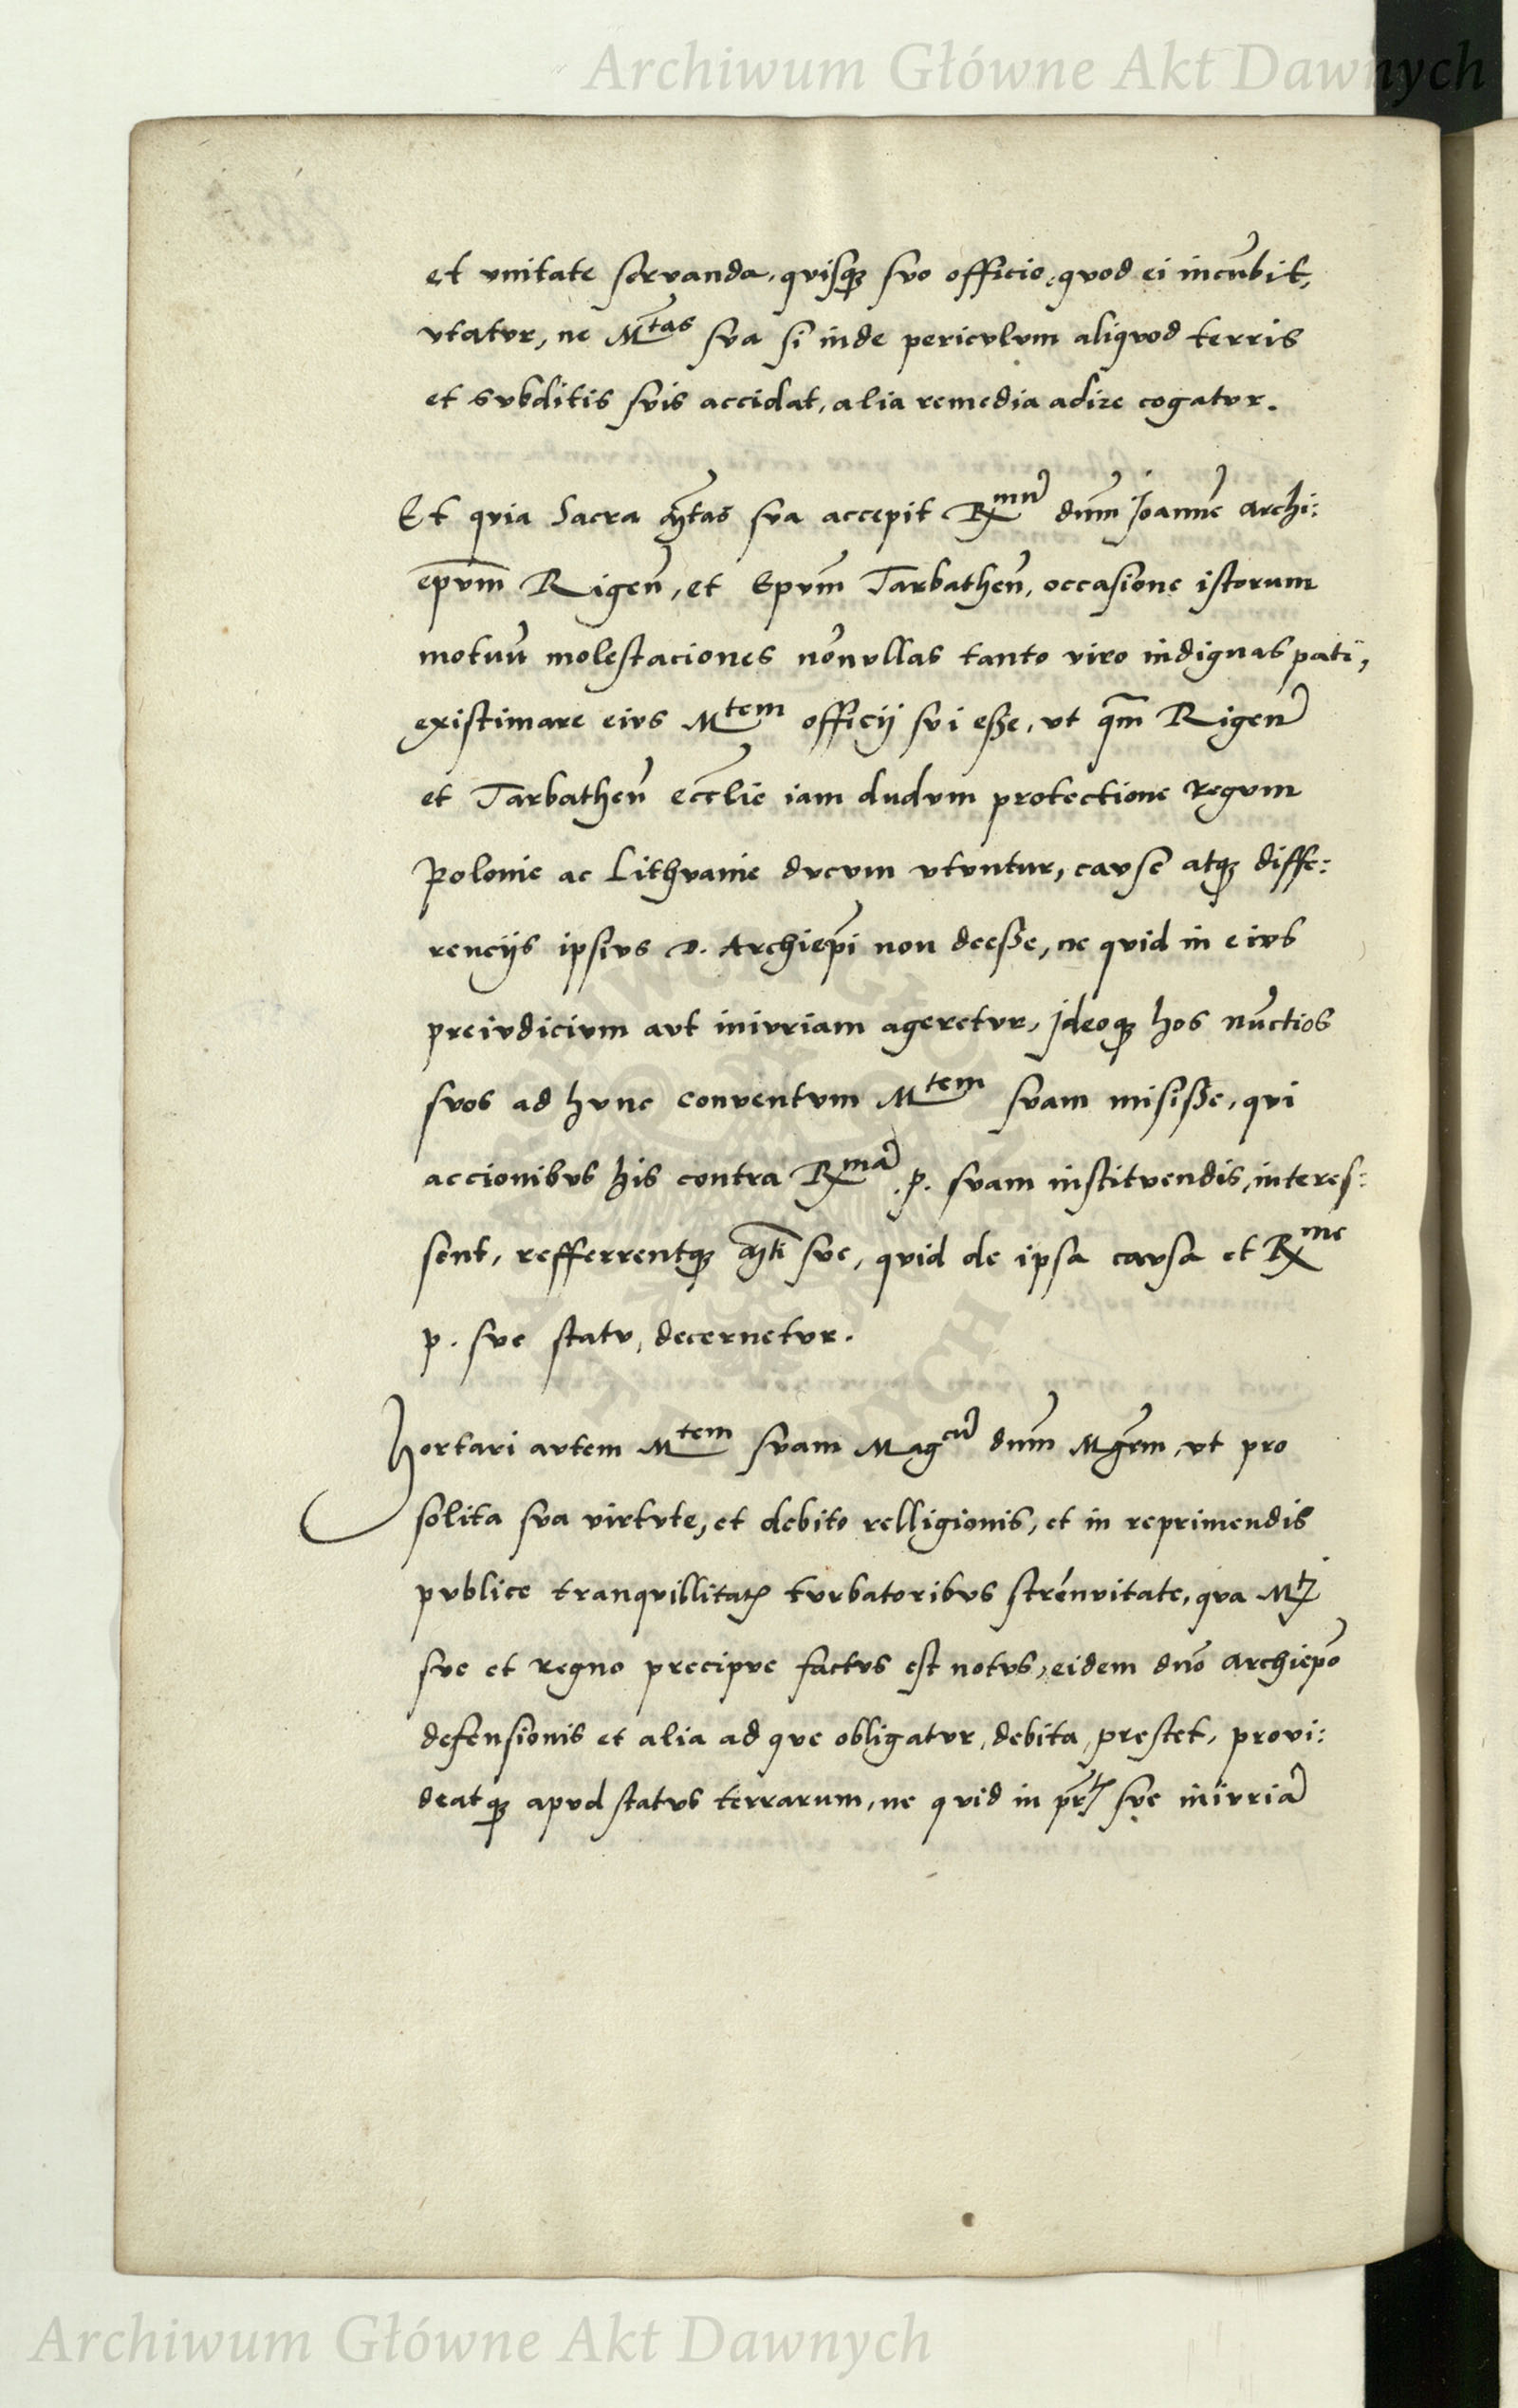 Archiwum Główne Akt Dawnych
et vnitate servanda, qvisq3 svo officio, qvod ei incūbit,
vtatvr, ne Mtas sva si inde pericvlvm aliqvod terris
et svbditis svis accidat, alia remedia adire cogatvr.
Et qvia Sacra Mtas sva accepit Rmū dnm̄ Joannē Archi:
epvm̄ Rigen̄, et Epvm̄ Tarbathen̄, occasione istorum
motuū molestaciones nōnvllas tanto viro indignas pati,
existimare eivs Mtem officij svi esse, vt qm̄ Rigen̄
et Tarbathen̄ eccl̄ie iam dudvm protectione Regvm
Polonie ac Lithvanie dvcvm vtvntur, cavse atq3 diffe:
rencijs ipsivs D. Archiepī non deesse, ne qvid in eivs
preivdicivm avt inivriam ageretvr, Jdeoq3 hos nūctios
svos ad hvnc conventvm Mtem svam misisse, qvi
accionibvs his contra Rmā .p. svam institvendis, interes:
sent, refferrentq3 Mti sve, qvid de ipsa cavsa et Rme
p. sve statv, decernetvr.
Hortari avtem Mtem svam Magcū dnm̄ Mgr̄m, vt pro
solita sva virtvte, et debito relligionis, et in reprimendis
pvblice tranqvillitatꝭ tvrbatoribvs strenvitate, qva Mtꝭ
sve et regno precipve factvs est notvs, eidem dnō Archiepō
defensionis et alia ad qve obligatvr, debita, prestet, provi:
deatq3 apvd statvs terrarum, ne qvid in pr̄tꝭ sve inivriā
Archiwum Główne Akt Dawnych